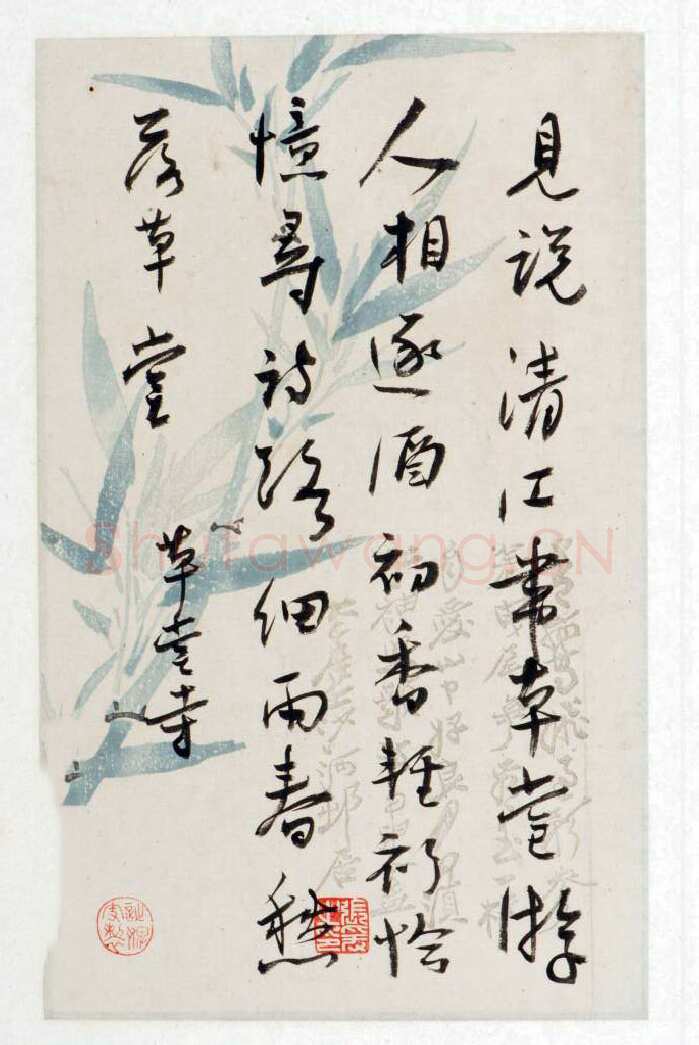 見說清江帶草堂游
人相逐酒初香輕衫恰
憶尋詩路細雨春愁
落草堂
草堂寺
Shufawang.CN